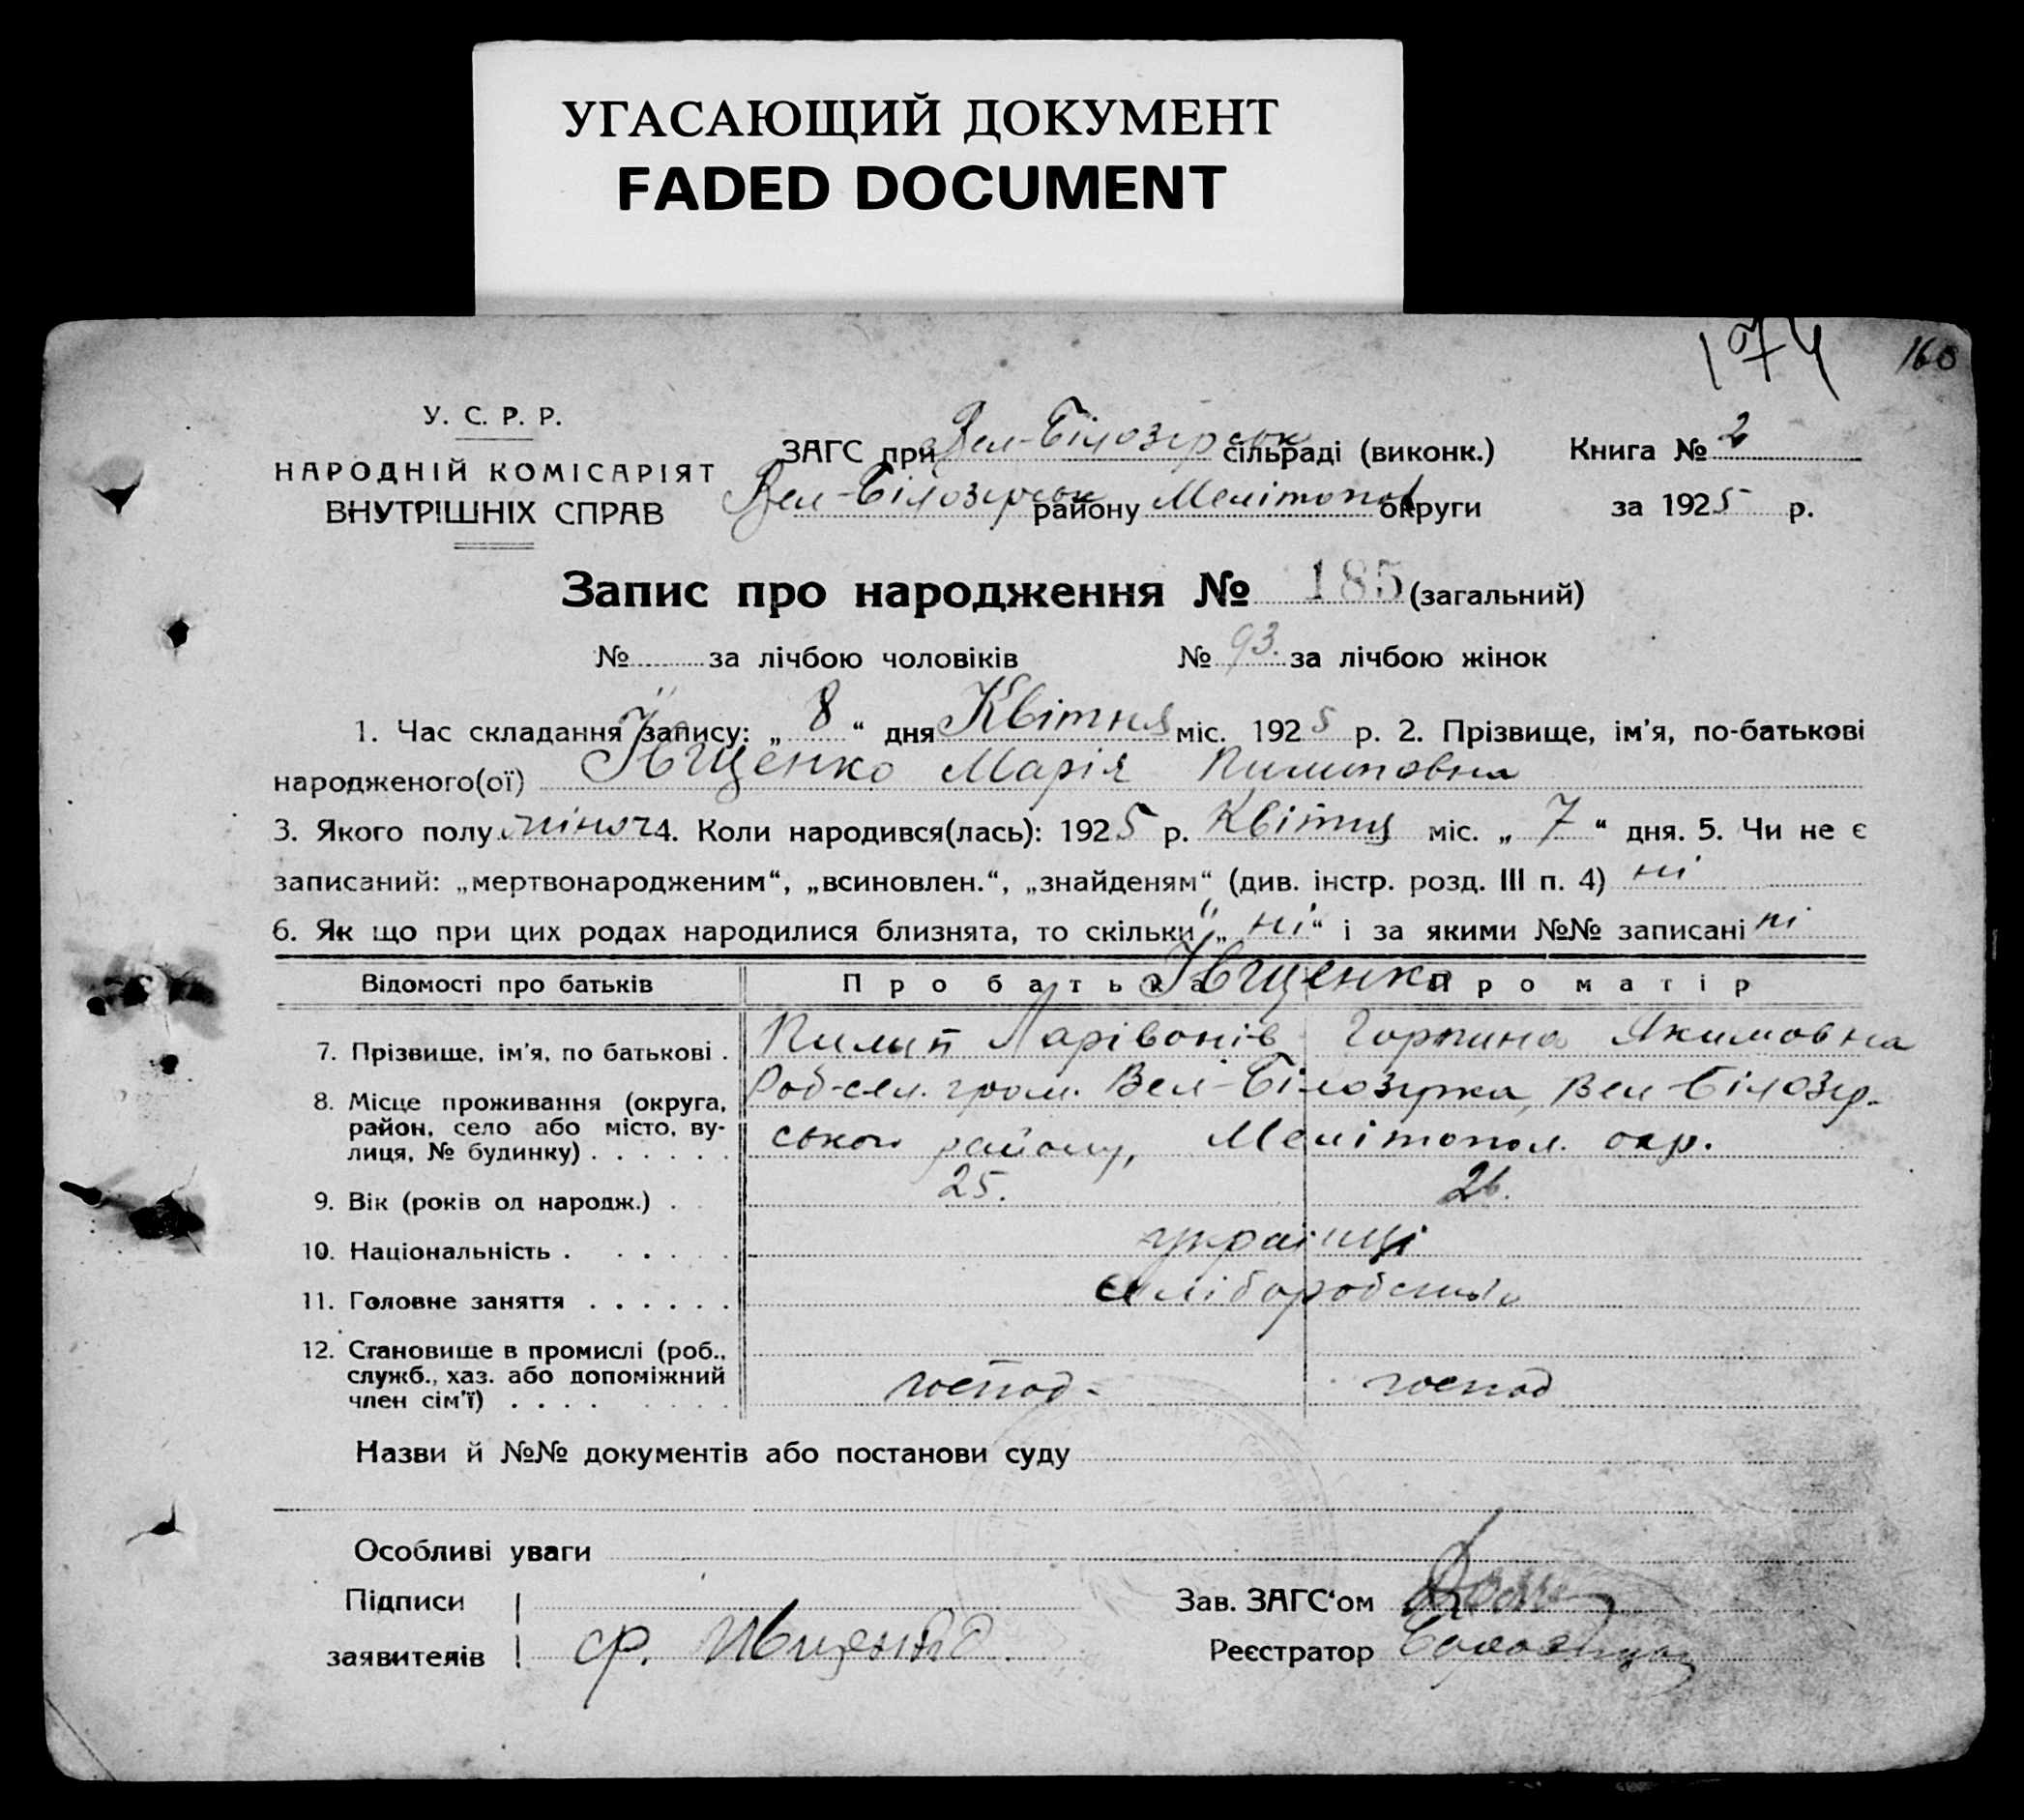 УГАСАЮЩИЙ ДОКУМЕНТ
FADED DOCUMENT
174 160
У. С. Р. Р.
НАРОДНІЙ КОМІСАРІЯТ
ВНУТРІШНІХ СПРАВ
ЗАГС при Вел-Білозірськ сільраді (виконк.) Книга № 2
Вел-Білозірськ району Мелітопол округи за 1925 р.
Запис про народження № 185 (загальний)
№ за лічбою чоловіків № 93. за лічбою жінок
1. Час складання запису: „ 8 “ дня Квітня міс. 1925 р. 2. Прізвище, ім'я, по-батькові
народженого(ої) Ївщенко Марія Пилиповна
3. Якого полу жіноч 4. Коли народився(лась): 1925 р. Квітня міс. „ 7 “ дня. 5. Чи не є
записаний: „мертвонародженим“, „всиновлен.“, „знайденям“ (див. інстр. розд. III п. 4) ні
6. Як що при цих родах народилися близнята, то скільки „ ні “ і за якими №№ записані ні
Відомості про батьків Про батька Про матір
Ївщенко
7. Прізвище, ім'я, по батькові . Пилип Ларівонів Горпина Якимовна
8. Місце проживання (округа, район, село або місто, вулиця, № будинку) . . . . . .
Роб-сел. гром. Вел-Білозірка, Вел-Білозір-
ського району, Мелітопол. окр.
9. Вік (років од народж.) . 25. 26.
10. Національність . . . . . українці
11. Головне заняття . . . . . .
12. Становище в промислі (роб.,
служб., хаз. або допоміжний
член сім'ї) . . . . господ- господ
Назви й №№ документів або постанови суду
Особливі уваги
Підписи
заявителів ср. Ивщенко
Зав. ЗАГС‘ом
Реєстратор